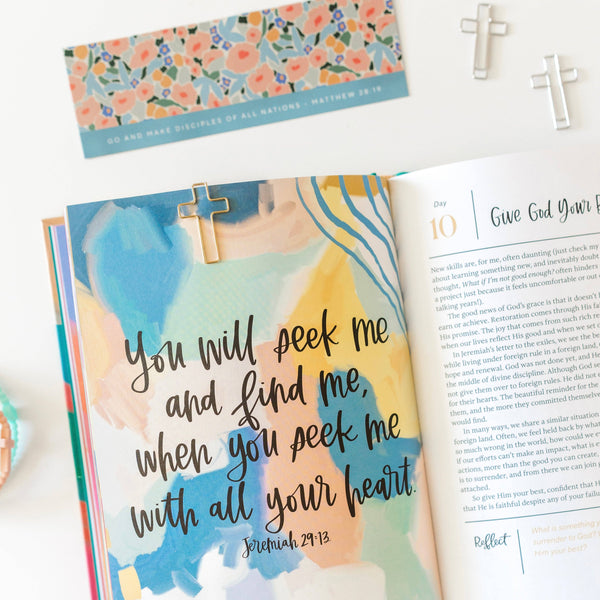 GO AND MAKE DISCIPLES OF ALL NATIONS - MATTHEW 28:19
You will seek me
and find me,
when you seek me
with all your heart.
Jeremiah 29:13
Day
10
Give God Your
New skills are, for me, often daunting (just check my
about learning something new, and inevitably doubt
thought, What if I'm not good enough? often hinders
a project just because it feels uncomfortable or out
talking years!).
The good news of God's grace is that it doesn't
earn or achieve. Restoration comes through His
His promise. The joy that comes from such rich
when our lives reflect His good and when we set
In Jeremiah's letter to the exiles, we see the be
while living under foreign rule in a foreign land,
hope and renewal. God was not done yet, and He
the middle of divine discipline. Although God
not give them over to foreign rule. He did not
for their hearts. The beautiful reminder for the
them, and the more they committed themselves
would find.
In many ways, we share a similar situation
foreign land. Often, we feel held back by what
so much wrong in the world, how could we
if our efforts can't make an impact, what is
actions, more than the good you can create,
is to surrender, and from there we can join
attached.
So give Him your best, confident that
that He is faithful despite any of your failu
Reflect
What is something
surrender to God?
Him your best?